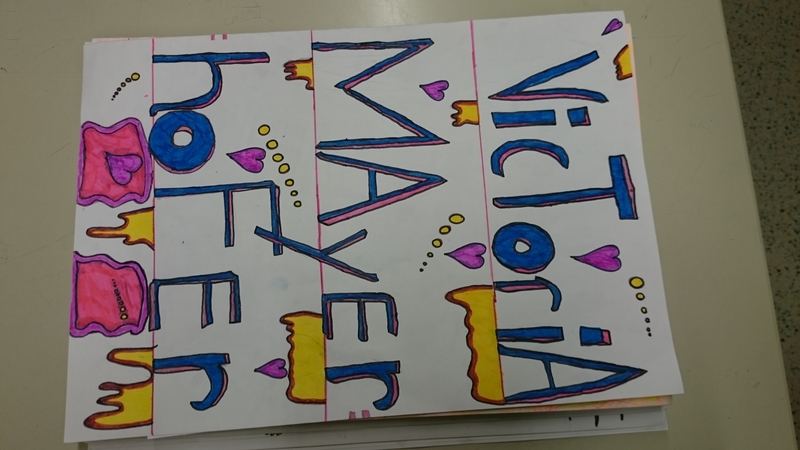 VicToriA
MAyEr
hoFEr